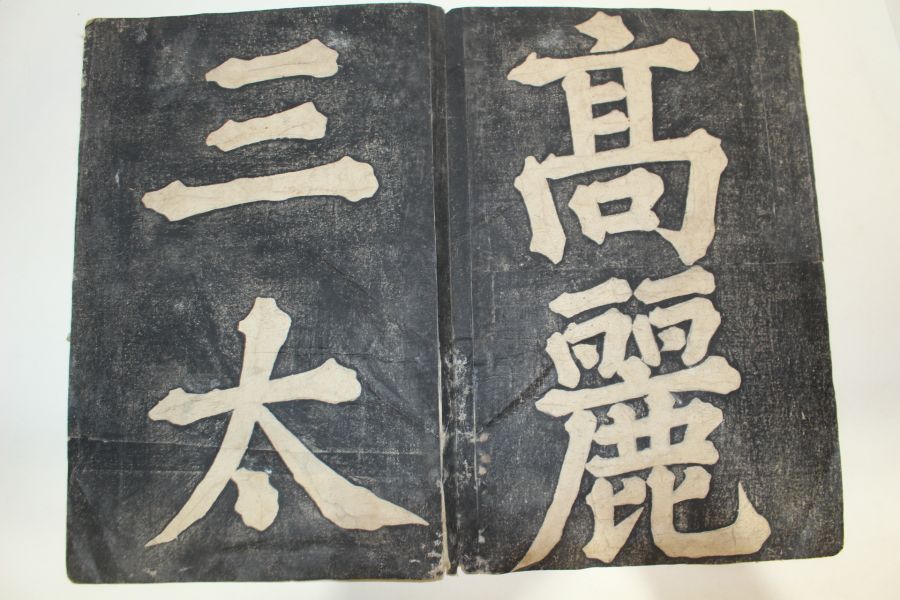 高麗
三太